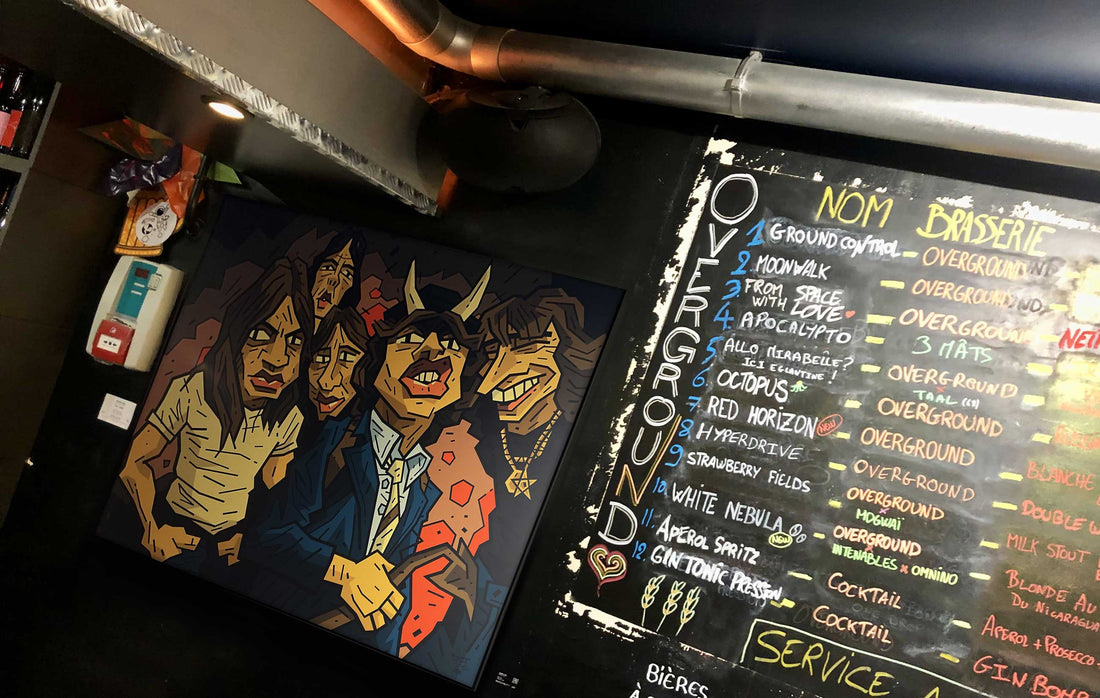 OVERGROUND
NOM BRASSERIE
1 GROUND CONTROL - OVERGROUND
2. MOONWALK - OVERGROUND
3 FROM SPACE WITH LOVE - OVERGROUND
3 MÂTS
4 APOCALYPTO - OVERGROUND
TAAL
5 ALLO MIRABELLE? - OVERGROUND
ICI EGLANTINE!
6. OCTOPUS - OVERGROUND
7. RED HORIZON NEW - OVERGROUND
BLANCHE
8. HYPERDRIVE - OVERGROUND
DOUBLE
9 STRAWBERRY FIELDS - OVERGROUND
MOGWAÏ
MILK STOUT
10. WHITE NEBULA NEW - OVERGROUND
INTENABLES x OMNINO
BLONDE AU
DU NICARAGUA
11. APEROL SPRITZ - COCKTAIL - APEROL + PROSECCO
12. GIN TONIC PRESSION - COCKTAIL - GIN BOMB
SERVICE
BIÈRES